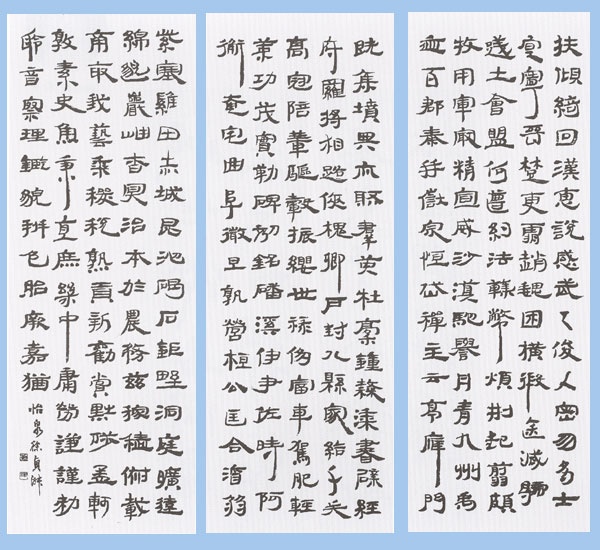 既集墳典亦聚羣英杜稾鍾隸漆書壁經
府羅將相路俠槐卿戶封八縣家給千兵
高冠陪輦驅轂振纓世祿侈富車駕肥輕
策功茂實勒碑刻銘磻溪伊尹佐時阿
衡奄宅曲阜微旦孰營桓公匡合濟弱
扶傾綺回漢惠說感武丁俊乂密勿多士
寔寧晉楚更霸趙魏困橫假途滅虢
踐土會盟何遵約法韓弊煩刑起翦頗
牧用軍最精宣威沙漠馳譽丹青九州禹
跡百郡秦并嶽宗恒岱禪主云亭雁門
紫塞雞田赤城昆池碣石鉅野洞庭曠遠
綿邈巖岫杳冥治本於農務茲稼穡俶載
南畝我藝黍稷稅熟貢新勸賞黜陟孟軻
敦素史魚秉直庶幾中庸勞謙謹敕
聆音察理鑑貌辨色貽厥嘉猷
怡泉徐貞